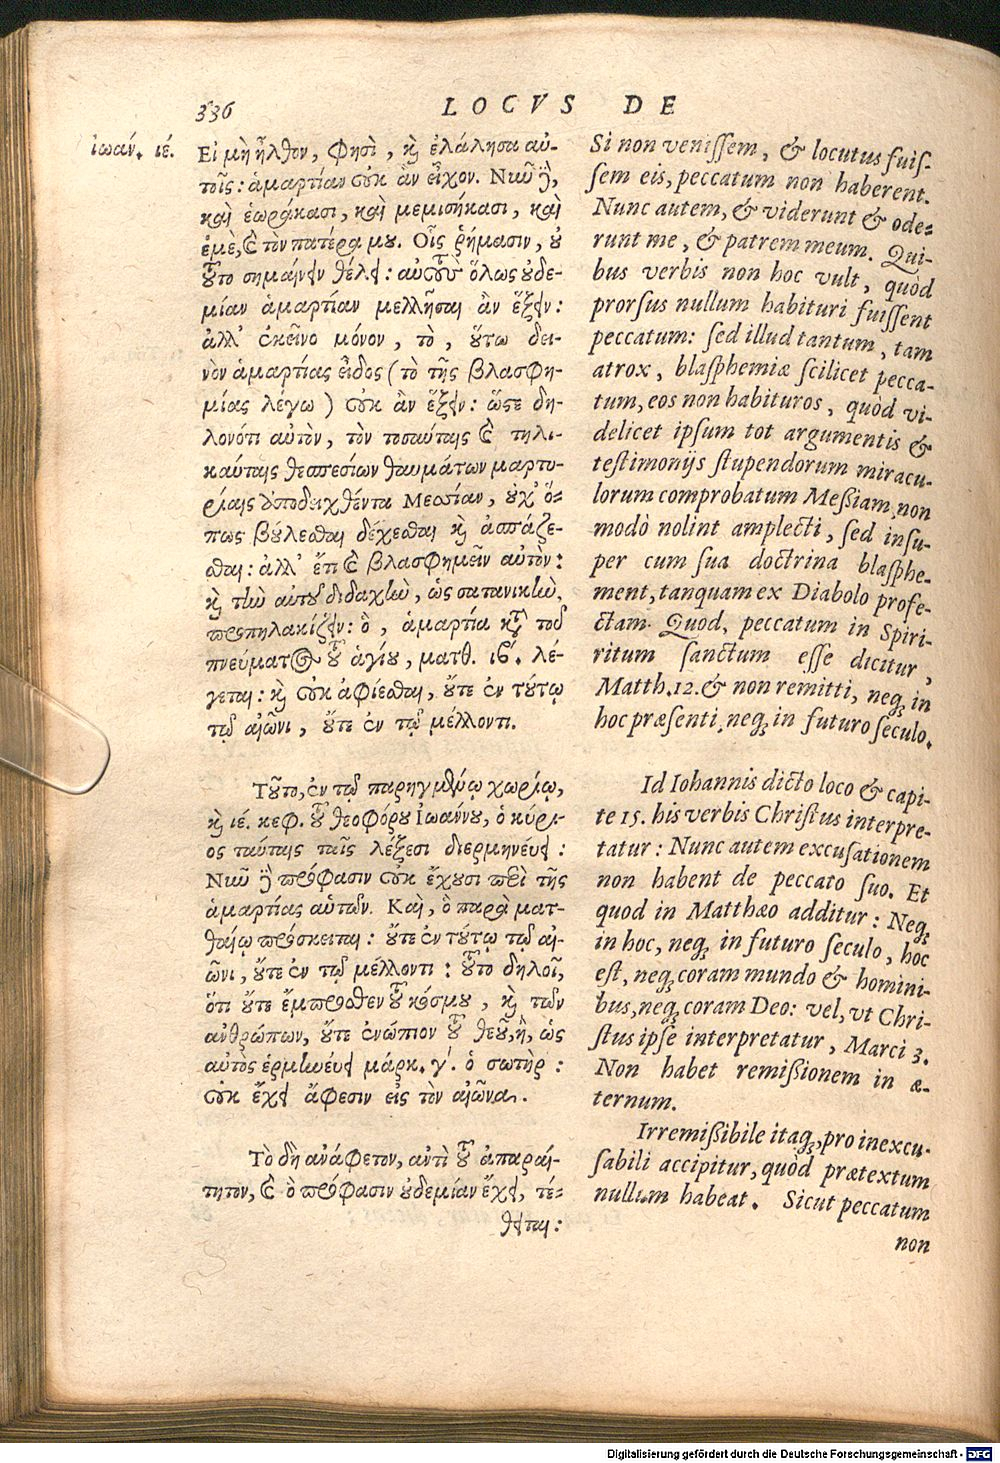 336 LOCVS DE
ἰωάν. ιέ.
Εἰ μὴ ἦλθον, φησὶ, καὶ ἐλάλησα αὐ-
τοῖς: ἁμαρτίαν οὐκ ἂν εἶχον. Νῦν δὲ,
καὶ ἑωράκασι, καὶ μεμισήκασι, καὶ
ἐμὲ, καὶ τὸν πατέρα μου. Οἷς ῥήμασιν, οὐ
τοῦτο σημαίνειν θέλει: αὐτοὺς ὅλως οὐδε-
μίαν ἁμαρτίαν μελλῆσαι ἂν ἕξειν:
ἀλλ' ἐκεῖνο μόνον, τὸ, οὕτω δει-
νὸν ἁμαρτίας εἶδος (τὸ τῆς βλασφη-
μίας λέγω) οὐκ ἂν ἕξειν: ὥστε δη-
λονότι αὐτὸν, τὸν τοσαύταις καὶ τηλι-
καύταις θεσπεσίων θαυμάτων μαρτυ-
ρίαις ὑποδειχθέντα Μεσσίαν, οὐχ' ὅ-
πως βούλεσθαι δέχεσθαι καὶ ἀσπάζε-
σθαι: ἀλλ' ἔτι καὶ βλασφημεῖν αὐτὸν:
καὶ τὴν αὐτοῦ διδαχὴν, ὡς σατανικὴν,
προπηλακίζειν: ὃ, ἁμαρτία κατὰ τοῦ
πνεύματος τοῦ ἁγίου, ματθ. ιβ'. λέ-
γεται: καὶ οὐκ ἀφίεσθαι, οὔτε ἐν τούτῳ
τῷ αἰῶνι, οὔτε ἐν τῷ μέλλοντι.
Τοῦτο, ἐν τῷ παρηγμένῳ χωρίῳ,
καὶ ιέ. κεφ. τοῦ θεοφόρου Ἰωάννου, ὁ κύρι-
ος ταύταις ταῖς λέξεσι διερμηνέυει:
Νῦν δὲ πρόφασιν οὐκ ἔχουσι περὶ τῆς
ἁμαρτίας αὑτῶν. Καὶ, ὃ παρὰ ματ-
θαίῳ πρόσκειται: οὔτε ἐν τούτῳ τῷ αἰ-
ῶνι, οὔτε ἐν τῷ μέλλοντι: τοῦτο δηλοῖ,
ὅτι οὔτε ἔμπροσθεν τοῦ κόσμου, καὶ τῶν
ἀνθρώπων, οὔτε ἐνώπιον τοῦ θεοῦ, ἢ, ὡς
αὐτὸς ἑρμηνέυει μάρκ. γ'. ὁ σωτὴρ:
οὐκ ἔχει ἄφεσιν εἰς τὸν αἰῶνα.
Τὸ δὴ ἀνάφετον, αντὶ τοῦ ἀπαραί-
τητον, καὶ ὃ πρόφασιν οὐδεμίαν ἔχει, τέ-
θειται:
Si non venissem, & locutus fuis-
sem eis, peccatum non haberent.
Nunc autem, & viderunt & ode-
runt me, & patrem meum. Qui-
bus verbis non hoc vult, quòd
prorsus nullum habituri fuissent
peccatum: sed illud tantum, tam
atrox, blasphemiæ scilicet pecca-
tum, eos non habituros, quòd vi-
delicet ipsum tot argumentis &
testimonijs stupendorum miracu-
lorum comprobatum Meßiam, non
modò nolint amplecti, sed insu-
per cum sua doctrina blasphe-
ment, tanquam ex Diabolo profe-
ctam. Quod, peccatum in Spiri-
ritum sanctum esse dicitur,
Matth. 12. & non remitti, neq; in
hoc præsenti, neq; in futuro seculo.
Id Iohannis dicto loco & capi-
te 15. his verbis Christus interpre-
tatur: Nunc autem excusationem
non habent de peccato suo. Et
quod in Matthæo additur: Neq;
in hoc, neq; in futuro seculo, hoc
est, neq; coram mundo & homini-
bus, neq; coram Deo: vel, vt Chri-
stus ipse interpretatur, Marci 3.
Non habet remißionem in æ-
ternum.
Irremißibile itaq;, pro inexcu-
sabili accipitur, quòd prætextum
nullum habeat. Sicut peccatum
non
Digitalisierung gefördert durch die Deutsche Forschungsgemeinschaft - DFG